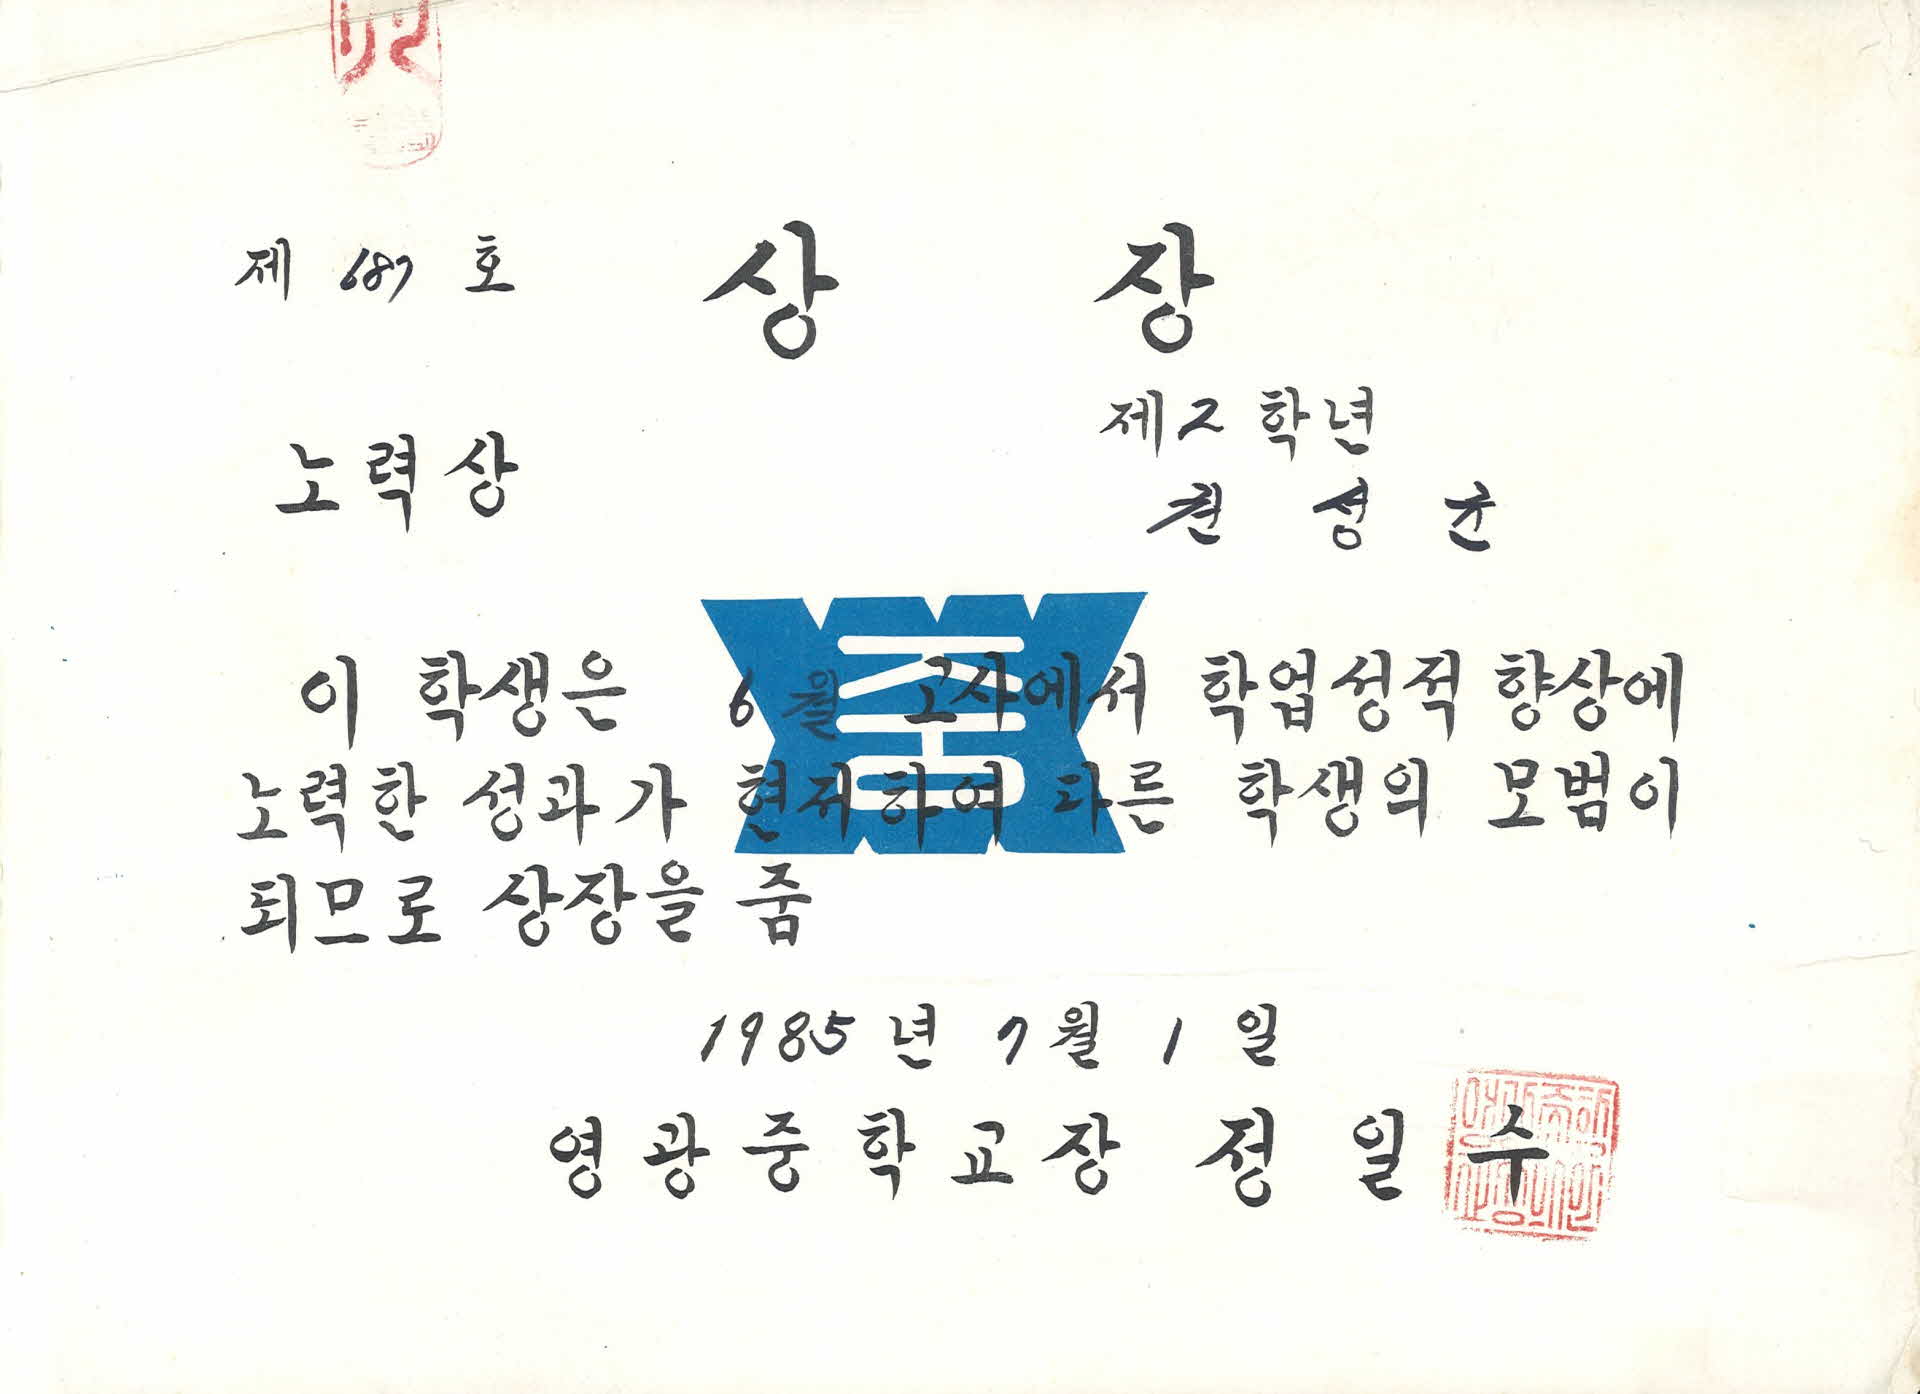 제 687 호 상 장
제2 학년
노력상
권 성 균
중
이 학생은 6월 고사에서 학업성적 향상에
노력한 성과가 현저하여 다른 학생의 모범이
되므로 상장을 줌
1985 년 7월 1 일
영광중학교장 정 일 수